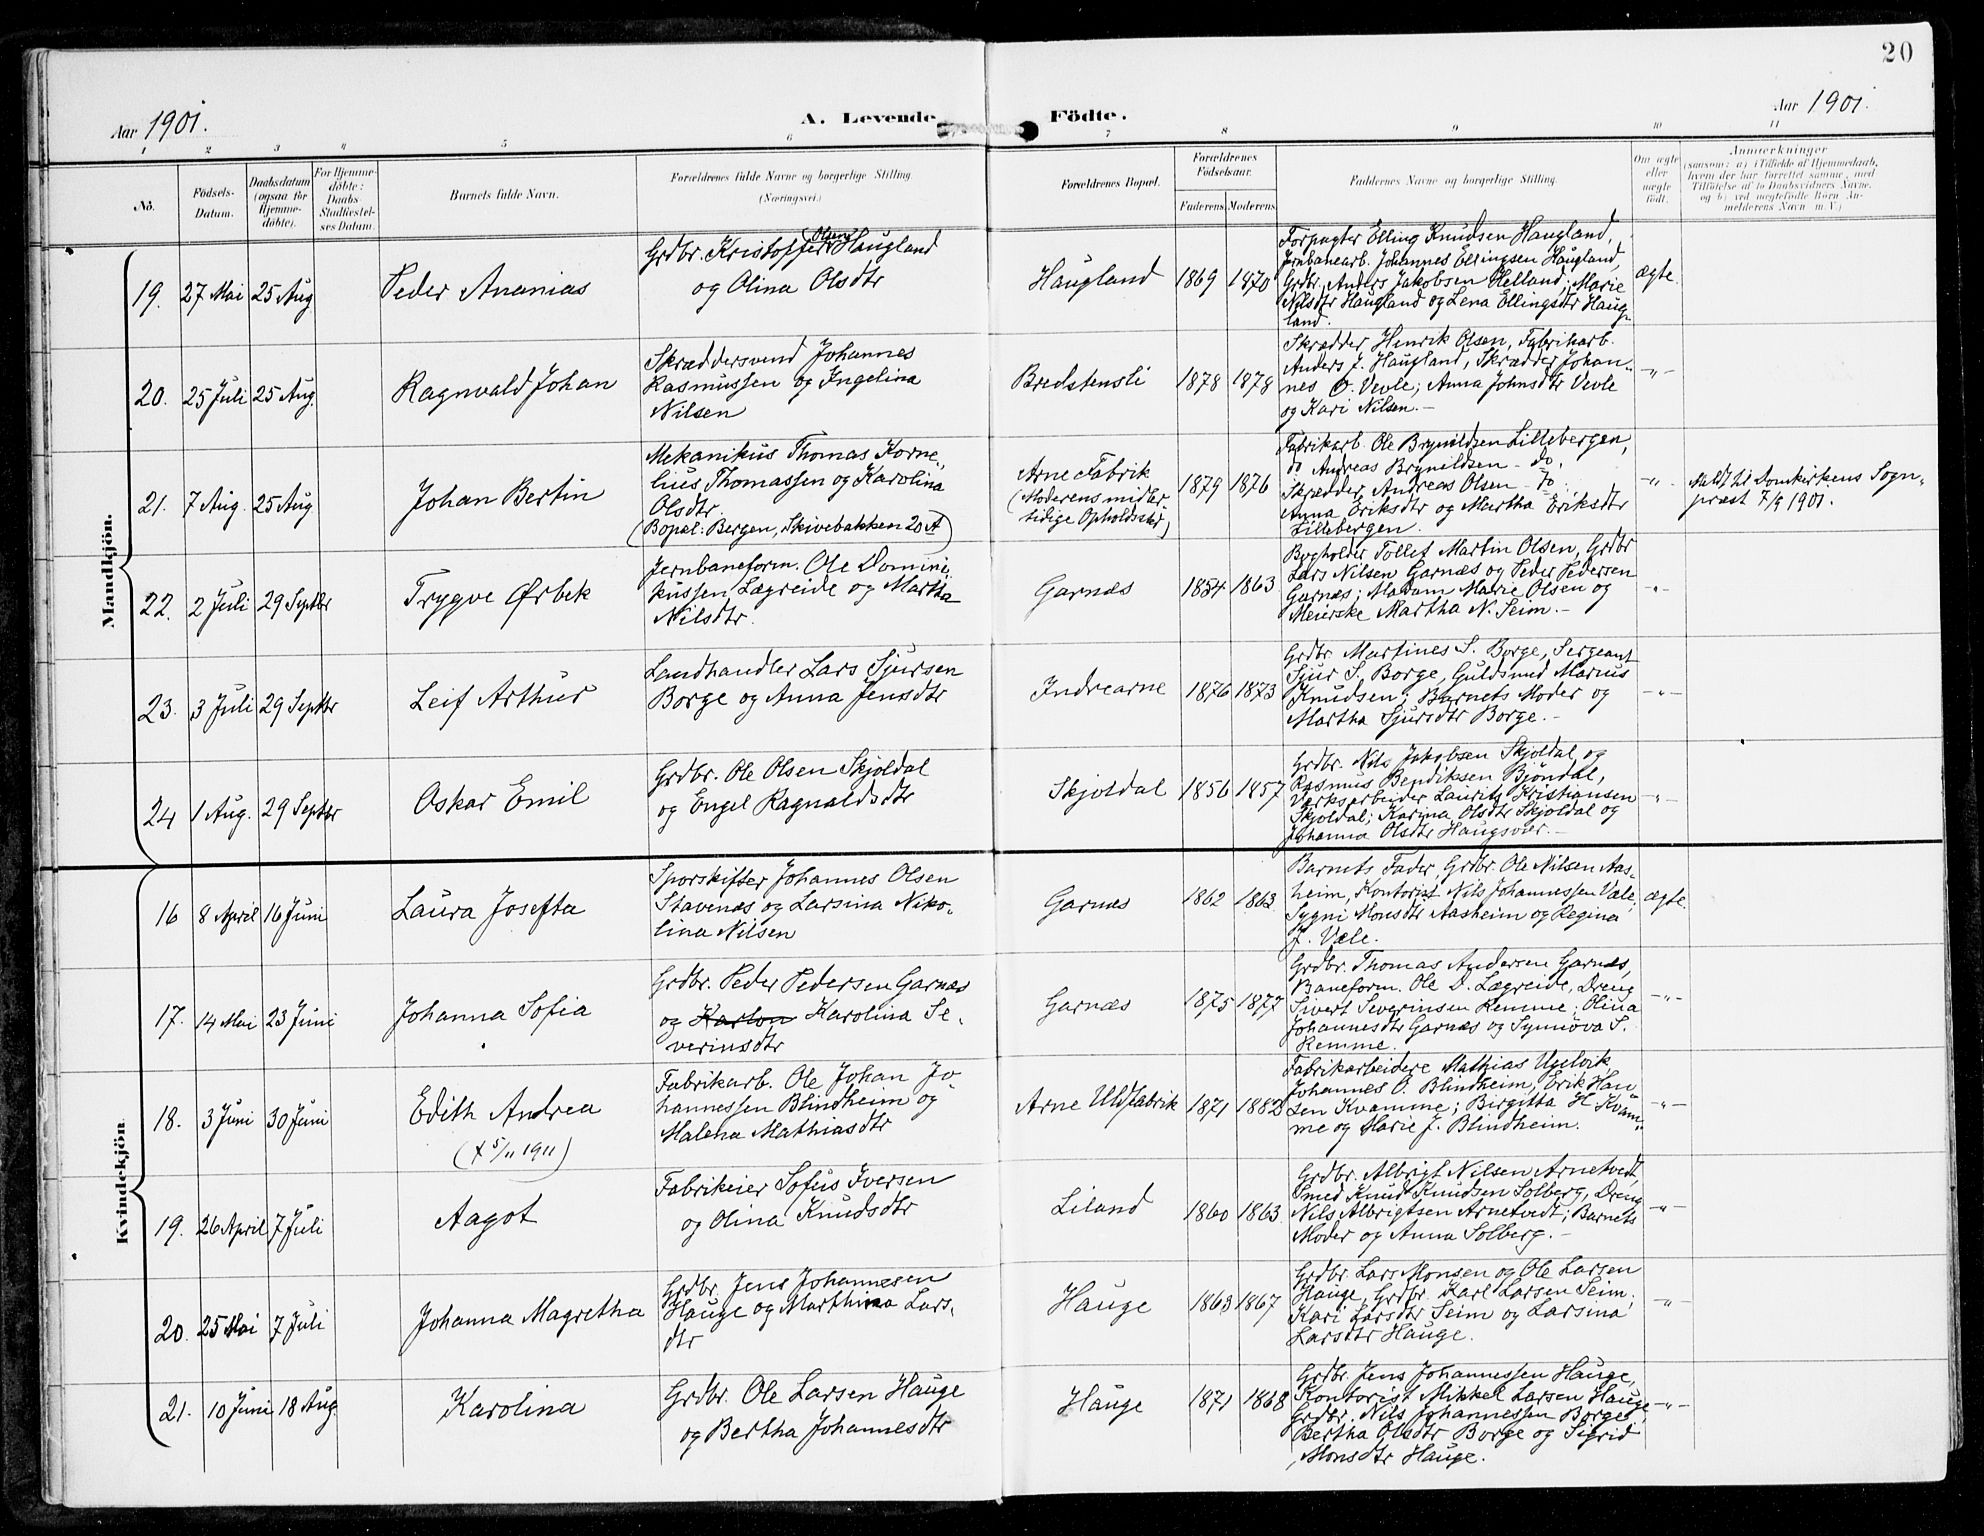 20
Aar 1901.
A. Levende Födte.
Aar 1901.
1 2 3 4 5 6 7 8 9 10 11
No.
Födsels-Datum.
Daabsdatum (ogsaa för Hjemmedøbte).
For Hjemmedøbte: Daabs-Stadfæstelses Datum.
Barnets fulde Navn.
Forældrenes fulde Navne og borgerlige Stilling. (Næringsvei.)
Forældrenes Bopæl.
Forældrenes Födselsaar.
Faderens. Moderens.
Faddernes Navne og borgerlige Stilling.
Om ægte eller uægte födt.
Anmærkninger
(saasom: a) (Tilfælde af Hjemmedaab,
hvem der har forrettet samme, med
Tilföielse af to Daabsvidners Navne,
og b) ved uægtefödte Börn An-
melderens Navn m. V.)
Mandkjön.
19. 27 Mai 25 Aug. Peder Ananias
Grdbr. Kristoffer Olsen Haugland
og Olina Olsdtr
Haugland 1869 1870
Forpagter Elling Knudsen Haugland,
Jernbanearb. Johannes Ellingsen Haugland,
Grdbr. Anders Jakobsen Helland; Marie
Nilsdtr Haugland og Lena Ellingsdtr Haug-
land.
ægte.
20. 25 Juli 25 Aug. Ragnvald Johan
Skræddersvend Johannes
Rasmussen og Ingelina
Nilsen
Bredstensli 1878 1878
Skrædder Henrik Olsen, Fabrikarb.
Anders J. Haugland, Skrædder Johan-
nes O. Vevle; Anna Johnsdtr Vevle
og Kari Nilsen.-
-"-
21. 7 Aug. 25 Aug Johan Bertin
Mekanikus Thomas Korne-
lius Thomassen og Karolina
Olsdtr.
(Bopæl: Bergen, Skivebakken 20 A)
Arne Fabrik
(Moderens midler-
tidige Opholdssted)
1879 1876
Fabrikarb. Ole Brynildsen Lillebergen,
do Andreas Brynildsen - do,
Skrædder Andreas Olsen - do;
Anna Eriksdtr og Martha Eriksdtr
Lillebergen.
-"-
Meldt til Domkirkens Sogne-
præst 7/9 1901.
22. 2 Juli 29 Septbr Trygve Ørbek
Jernbaneform. Ole Domini-
kussen Lægreide og Martha
Nilsdtr.
Garnæs 1854 1863
Bogholder Tollef Martin Olsen, Grdbr
Lars Nilsen Garnæs og Peder Pedersen
Garnæs; Madam Marie Olsen og
Meierske Martha N. Seim.-
-"-
23. 3 Juli 29 Septbr Leif Arthur
Landhandler Lars Sjursen
Borge og Anna Jensdtr
Indrearne 1876 1873
Grdbr Martines S. Borge, Sergeant
Sjur S. Borge, Guldsmed Marius
Knudsen; Barnets Moder og
Martha Sjursdtr Borge.-
-"-
24 1 Aug. 29 Septbr Oskar Emil
Grdbr. Ole Olsen Skjoldal
og Engel Ragnaldsdtr
Skjoldal 1856 1857
Grdbr. Nils Jakobsen Skjoldal og
Rasmus Bendiksen Bjöndal,
Værksarbeider Laurits Kristiansen
Skjoldal; Karina Olsdtr Skjoldal og
Johanna Olsdtr Haugsvær.-
-"-
Kvindekjön.
16 8 April 16 Juni Laura Josefta
Sporskifter Johannes Olsen
Stavenæs og Larsina Niko-
lina Nilsen
Garnæs 1862 1863
Barnets Fader, Grdbr. Ole Nilsen Aas-
heim, Kontorist Nils Johannessen Væle;
Sygni Monsdtr Aasheim og Regina
J. Væle.
ægte.
17. 14 Mai 23 Juni Johanna Sofia
Grdbr. Peder Pedersen Garnæs
og Karolina Se-
verinsdtr
Garnæs 1875 1877
Grdbr. Thomas Andersen Garnæs,
Baneform. Ole D. Lægreide, Dreng
Sivert Severinsen Remme; Olina
Johannesdtr Garnæs og Synnöva S.
Remme.
-"-
18. 3 Juni 30 Juni Edith Andrea
(+ 5/11 1911)
Fabrikarb. Ole Johan Jo-
hannessen Blindheim og
Malena Mathiasdtr
Arne Uldfabrik 1871 1882
Fabrikarbeidere Mathias
Johannes O. Blindheim, Erik Han-
sen Kvamme; Birgitta H. Kvam-
me og Marie J. Blindheim.
-"-
19. 26 April 7 Juli Aagot
Fabrikeier Sofus Iversen
og Olina Knudsdtr
Liland 1860 1863
Grdbr. Albrigt Nilsen Arnetvedt,
Smed Knud Knudsen Solberg, Dreng
Nils Albrigtsen Arnetvedt; Barnets
Moder og Anna Solberg.-
-"-
20. 25 Mai 7 Juli Johanna Magretha
Grdbr. Jens Johannesen
Hauge og Marthina Lars-
dtr
Hauge 1863 1867
Grdbr. Lars Monsen og Ole Larsen
Hauge, Grdbr. Karl Larsen Seim;
Kari Larsdtr Seim og Larsina
Larsdtr Hauge.
-"-
21. 10 Juni 18 Aug. Karolina
Grdbr. Ole Larsen Hauge
og Bertha Johannesdtr
Hauge 1871 1868
Grdbr. Jens Johannessen Hauge,
Kontorist Mikkel Larsen Hauge,
Grdbr. Nils Johannessen Borge;
Bertha Olsdtr Borge og Sigrid
Monsdtr Hauge.
-"-